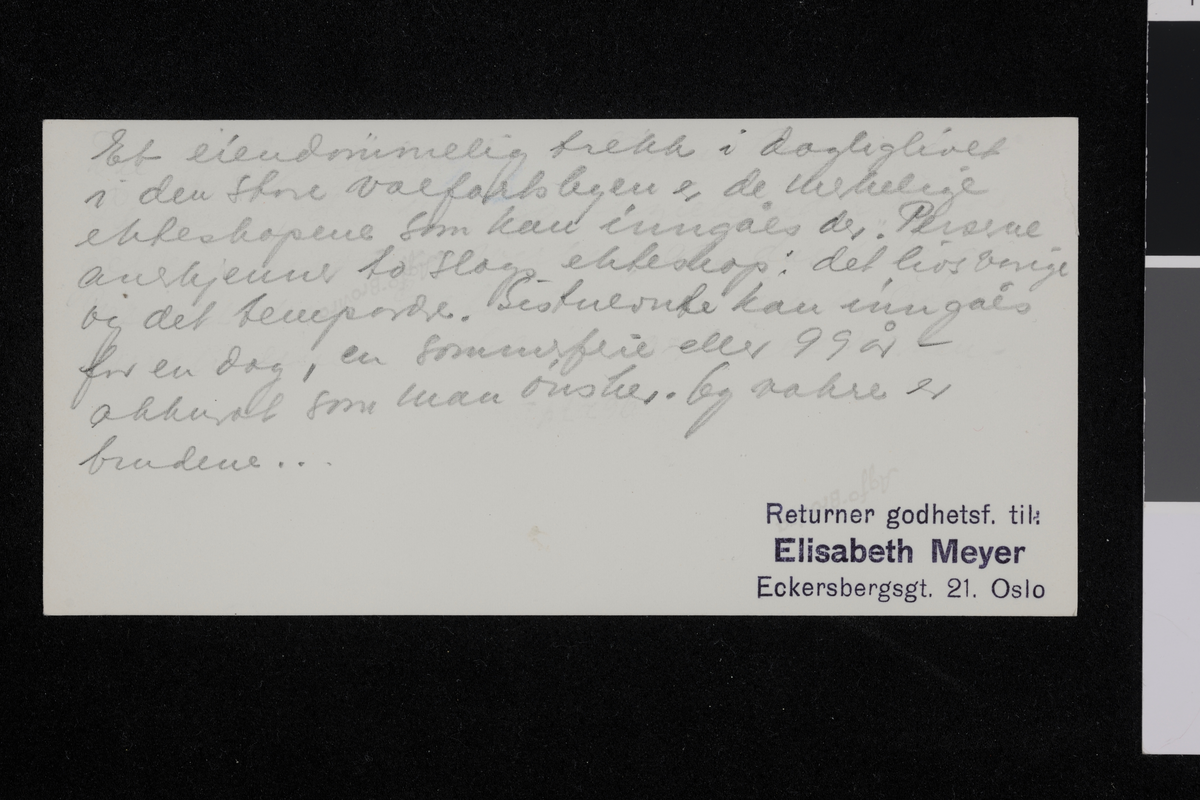 Et eiendommelig trekk i dagliglivet
i den store valfartsbyen er de merkelige
ekteskapene som kan inngåes der. Perserne
anerkjenner to slags ekteskap: det livsvarige
og det temporære. Sistnevnte kan inngåes
for en dag, en sommerferie eller 99 år –
akkurat som man ønsker. Og vakre er
brudene...
Returner godhetsf. til:
Elisabeth Meyer
Eckersbergsgt. 21. Oslo